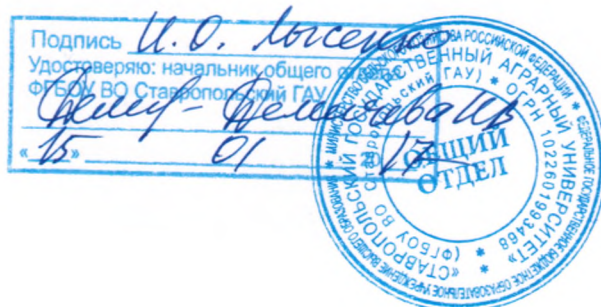 Подпись И.О. Лысенко
Удостоверяю: начальник общего отдела
ФГБОУ ВО Ставропольский ГАУ
« 15 » 01 20 17
ОБЩИЙ
ОТДЕЛ
МИНИСТЕРСТВО СЕЛЬСКОГО ХОЗЯЙСТВА РОССИЙСКОЙ ФЕДЕРАЦИИ * ФЕДЕРАЛЬНОЕ ГОСУДАРСТВЕННОЕ БЮДЖЕТНОЕ ОБРАЗОВАТЕЛЬНОЕ УЧРЕЖДЕНИЕ ВЫСШЕГО ОБРАЗОВАНИЯ *
«СТАВРОПОЛЬСКИЙ ГОСУДАРСТВЕННЫЙ АГРАРНЫЙ УНИВЕРСИТЕТ» *
(ФГБОУ ВО Ставропольский ГАУ) * ОГРН 1022601993468 *